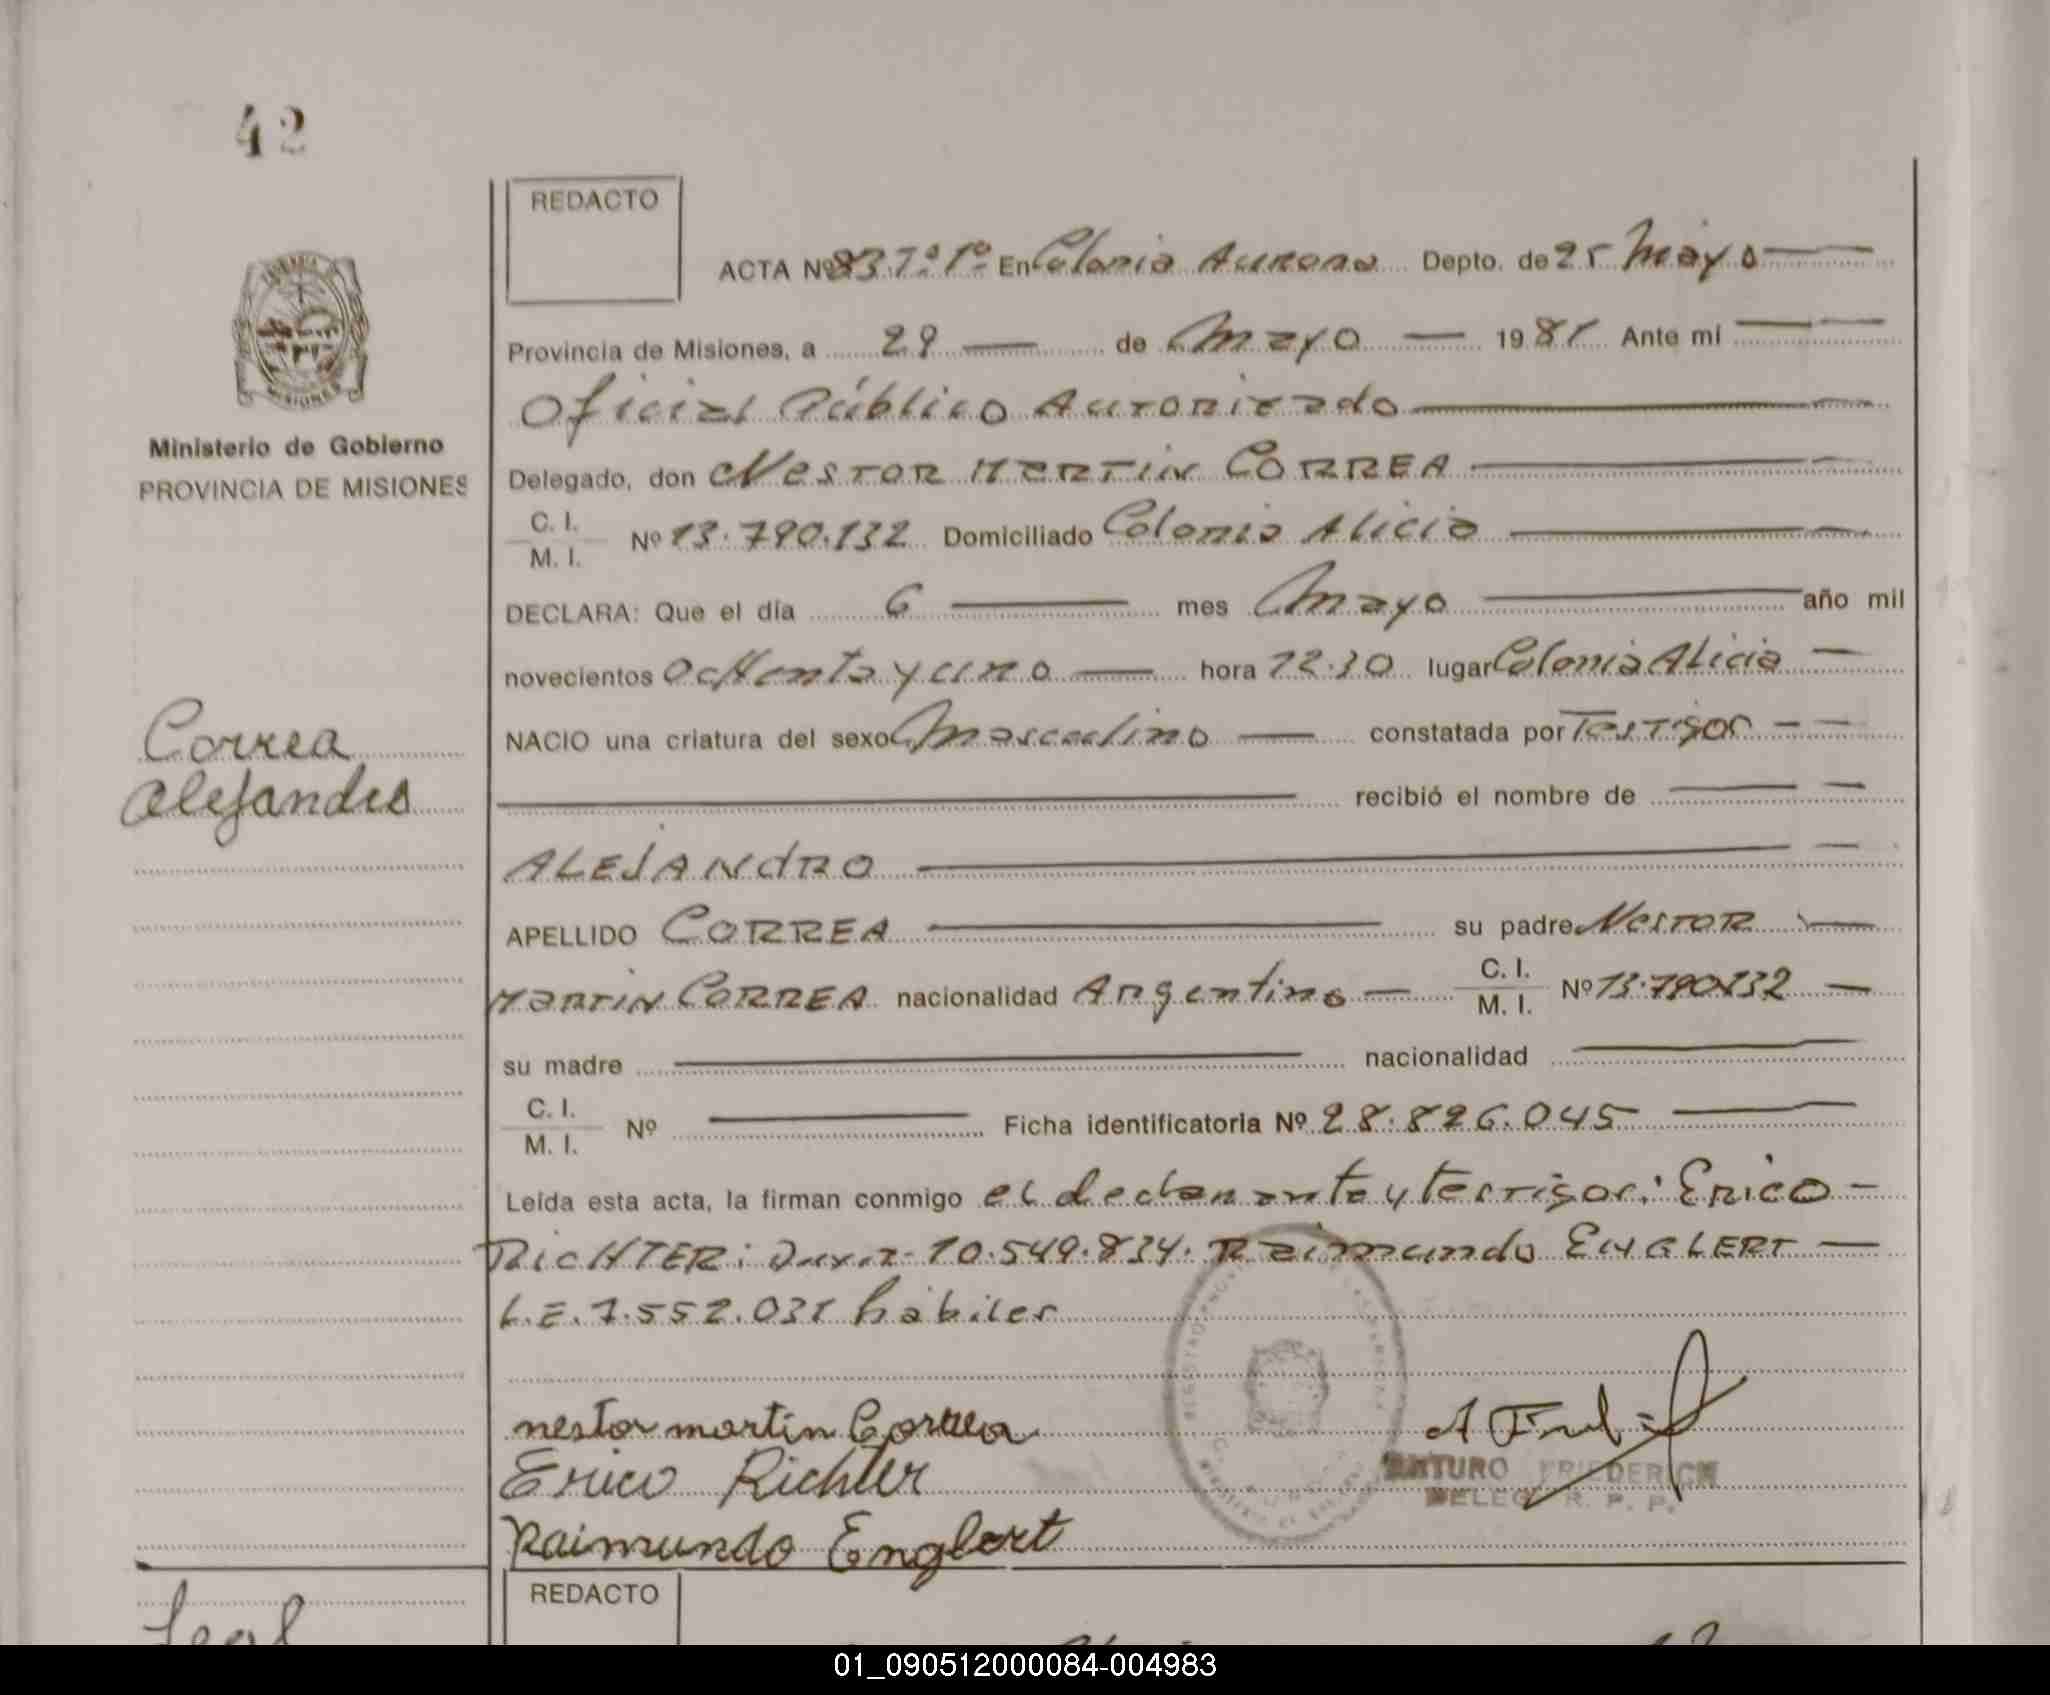 42
REDACTO
ACTA Nº 837º 1º En Colonia Aurora Depto. de 25 Mayo
Provincia de Misiones, a 29 de Mayo 1981 Ante mi
Oficial Público Autorizado
Ministerio de Gobierno
PROVINCIA DE MISIONES
Delegado, don Nestor Martin CORREA
C. I.
M. I.
Nº 13.790.132 Domiciliado Colonia Alicia
DECLARA: Que el día 6 mes Mayo año mil
novecientos ochenta y uno hora 12.30 lugar Colonia Alicia
Correa
Alejandro
NACIO una criatura del sexo Masculino constatada por Testigos
recibió el nombre de
ALEJANDRO
APELLIDO CORREA su padre Nestor
Martin CORREA nacionalidad Argentino C. I. M. I. Nº 13.790.132
su madre nacionalidad
C. I.
M. I.
Nº Ficha identificatoria Nº 28.826.045
Leída esta acta, la firman conmigo el declarante y testigos: Erico
RICHTER: 10.549.834. Raimundo ENGLERT
L.E. 7.552.031 hábiles
nestor martin Correa
Erico Richter
Raimundo Englert
ARTURO FRIEDERICH
DELEG. R. P. P.
REDACTO
Leal
01_090512000084-004983